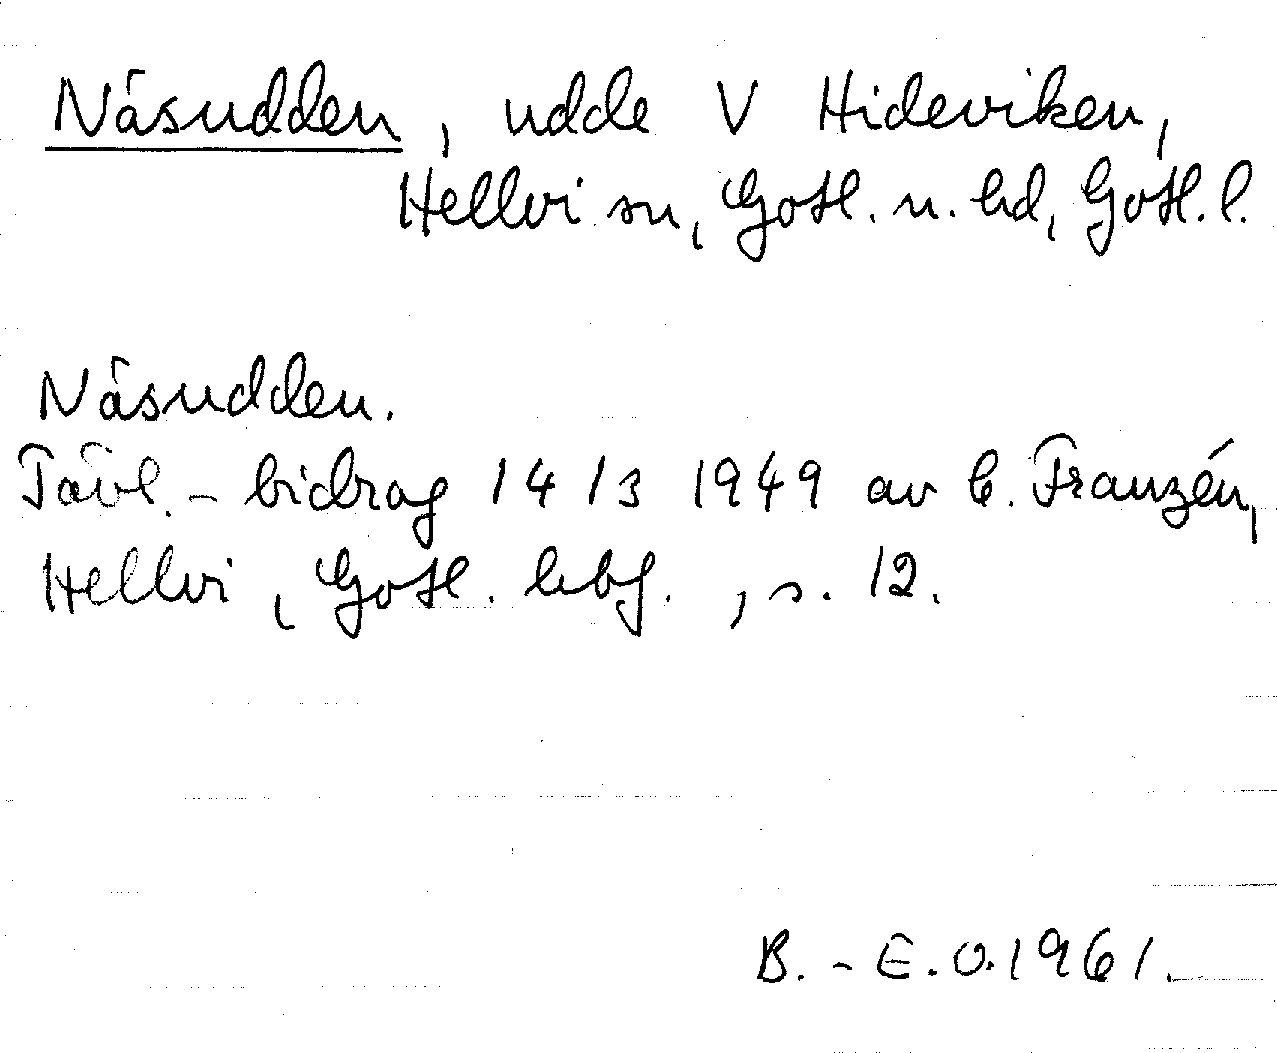 Näsudden, udde V Hideviken,
Hellvi sn, Gotl. n. hd, Gotl. l.
Näsudden.
Tävl. - bidrag 14/3 1949 av C. Franzén,
Hellvi, Gotl. hbf., s. 12.
B. - E. O. 1961.